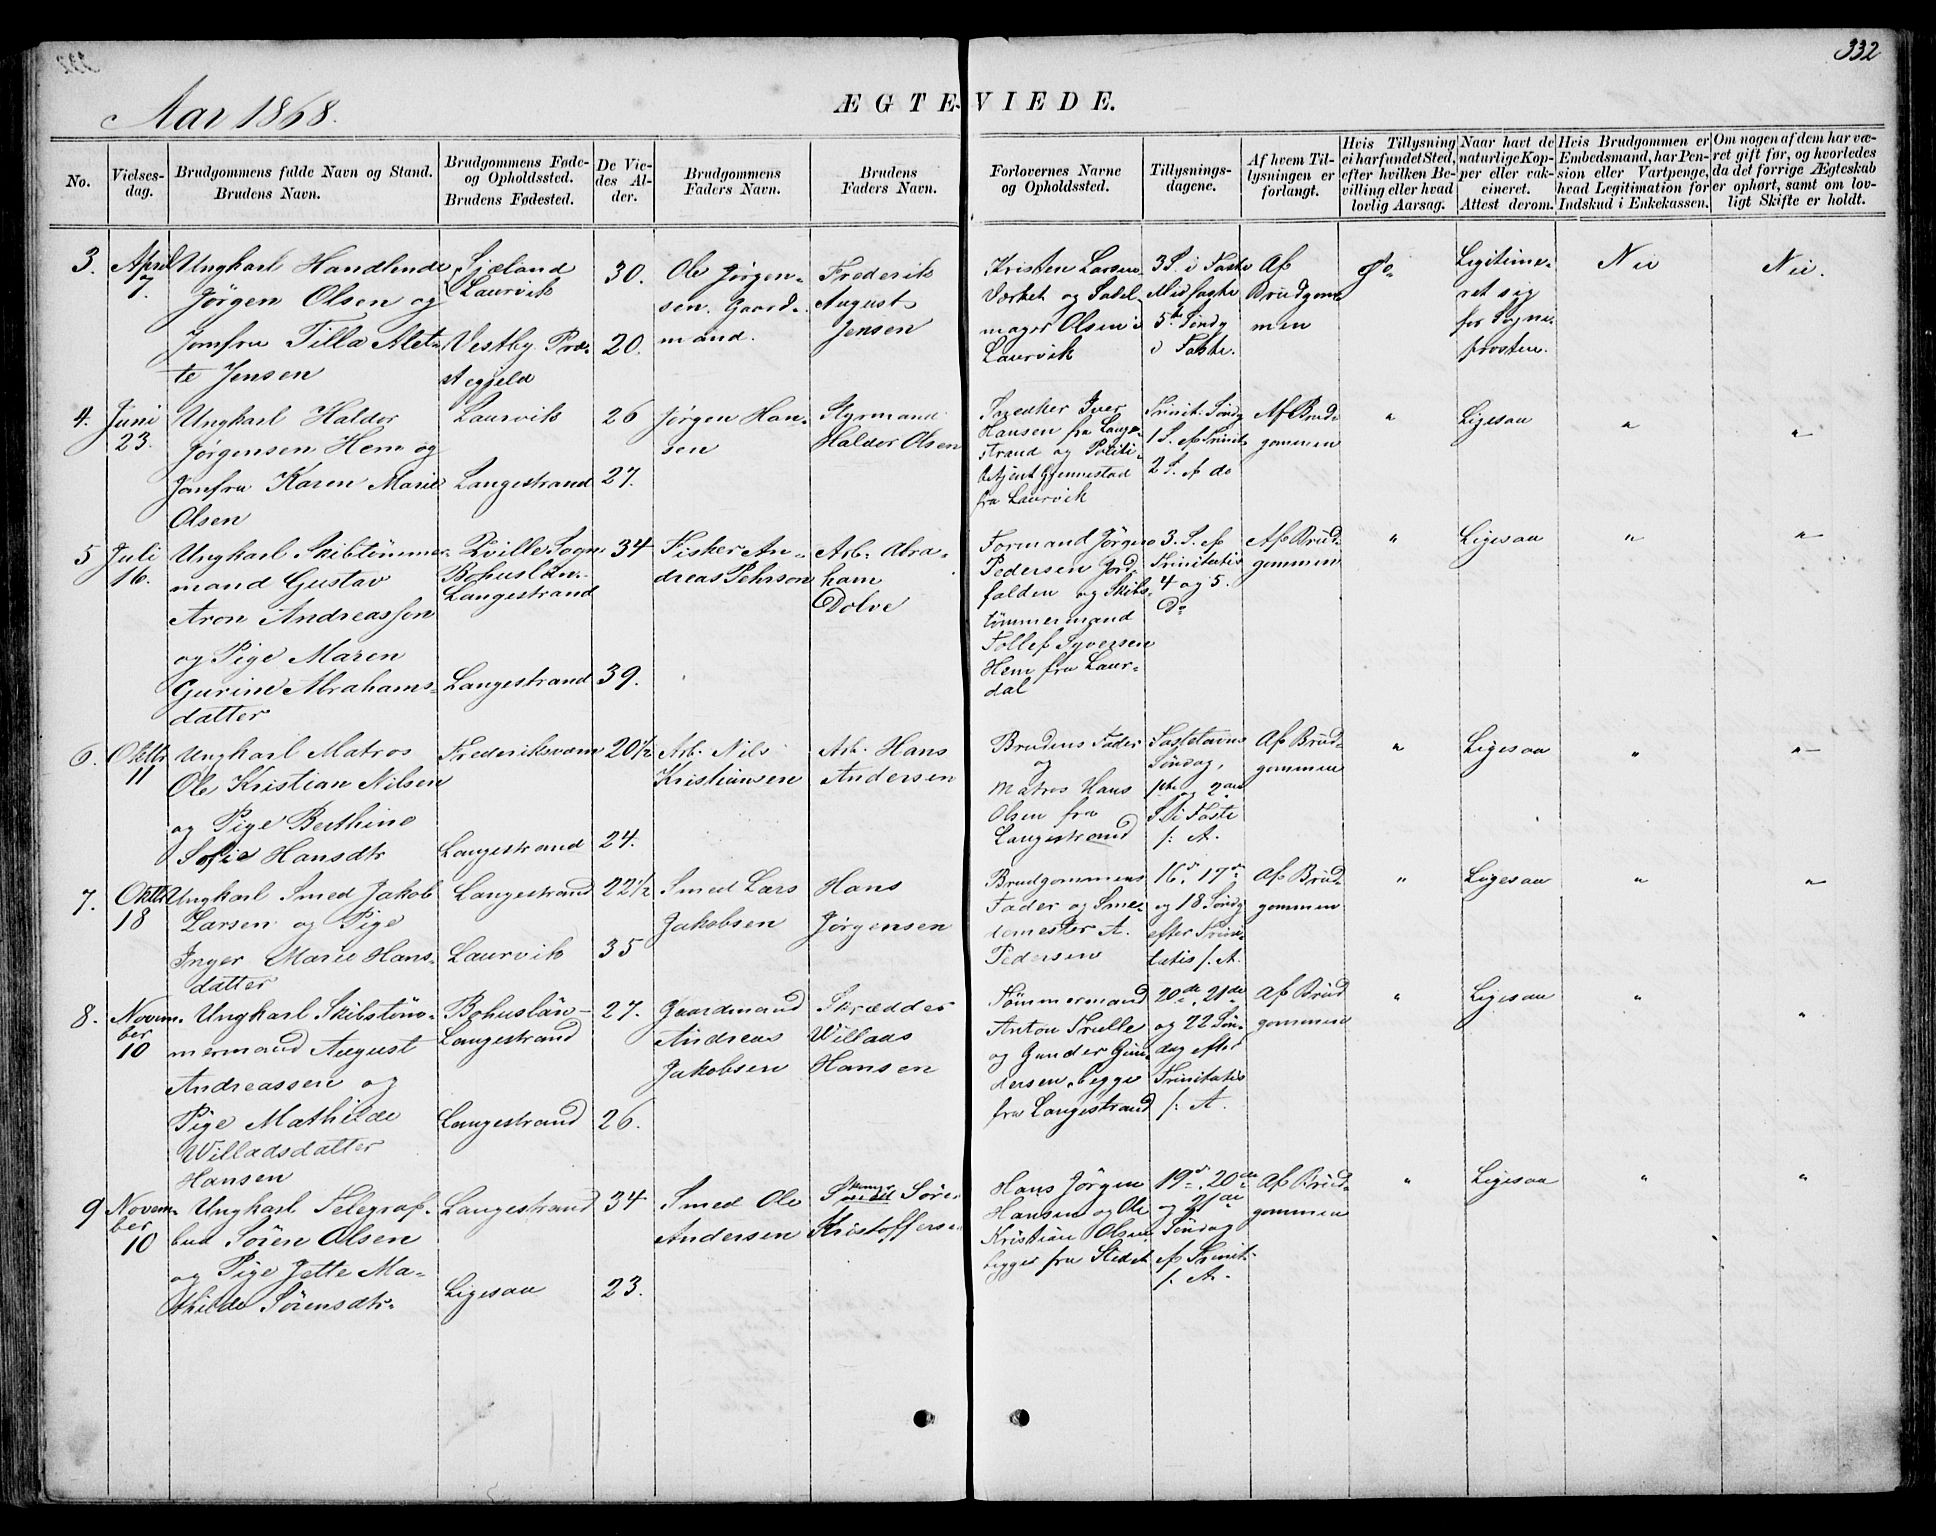 332
Aar 1868.
ÆGTEVIEDE.
No.
Vielses-
dag.
Brudgommens fulde Navn og Stand.
Brudens Navn.
Brudgommens Føde-
og Opholdssted.
Brudens Fødested.
De Vie-
des Al-
der.
Brudgommens
Faders Navn.
Brudens
Faders Navn.
Forlovernes Navne
og Opholdssted.
Tillysnings-
dagene.
Af hvem Til-
lysningen er
forlangt.
Hvis Tillysning
ei har fundet Sted,
efter hvilken Be-
villing eller hvad
lovlig Aarsag.
Naar havt de
naturlige Kop-
per eller vak-
cineret.
Attest derom.
Hvis Brudgommen er
Embedsmand, har Pen-
sion eller Vartpenge,
hvad Legitimation for
Indskud i Enkekassen.
Om nogen af dem har væ-
ret gift før, og hvorledes
da det forrige Ægteskab
er ophørt, samt om lov-
ligt Skifte er holdt.
3.
April
7.
Ungkarl Handlende
Jørgen Olsen og
Jomfru Tilla Alet-
te Jensen
Sjæland
Laurvik
Vestby Præ-
stegjeld
30.
20.
Ole Jørgen-
sen. Gaard-
mand.
Frederik
August
Jensen
Kristen Larsen
Værket og Sadel
mager Olsen i
Laurvik
3 S. i Faste
Midfaste
5te Søndg
i Faste.
Af
Brudgom-
men
Legitime-
ret sig
for Sogne-
prosten.
Nei
Nei.
4.
Juni
23.
Ungkarl Haldor
Jørgensen Hem og
Jomfru Karen Marie
Olsen
Laurvik
Langestrand
26
27.
Jørgen Han-
sen
Styrmand
Haldor Olsen
Snedker Iver
Hansen fra Lange-
strand og Politi-
betjent Gjennestad
fra Laurvik
Trinit. Søndg
1 S. ef Trinit
2 S. ef do
Af Brud-
gommen
"
Ligesaa
"
"
5
Juli
16.
Ungkarl Skibtømmer-
mand Gustav
Aron Andreassen
og Pige Maren
Gurine Abrahams-
datter
Qville Sogn
Bohuslän-
Langestrand
Langestrand
34
39.
Fisker An-
dreas Pehrson
Arb. Abra-
ham
Dolve
Formand Jørgen
Pedersen Jord-
falden og Skibs-
tømmermand
Tollef Syversen
Hem fra Laur-
dal
3. S. ef
Trinitatis
4 og 5.
Do
Af Brud-
gommen
"
Ligesaa
"
"
6.
Oktbr
11
Ungkarl Matros
Ole Kristian Nilsen
og Pige Berthine
Sofie Hansdtr
Frederiksværn
Langestrand
20 1/2
24.
Arb. Nils
Kristiansen
Arb. Hans
Andersen
Brudens Fader
og
Matros Hans
Olsen fra
Langestrand
Fastelavns
Søndag,
1ste og 2den
S. i Faste
f: A.
Af Brud-
gommen
"
Ligesaa
"
"
7.
Oktbr
18
Ungkarl Smed Jakob
Larsen og Pige
Inger Marie Hans-
datter
Langestrand
Laurvik
22 1/2
35
Smed Lars
Jakobsen
Hans
Jørgensen
Brudgommens
Fader og Sme-
demester A.
Pedersen
16de, 17de
og 18 Søndg
efter Trini-
tatis f. A.
Af Brud-
gommen
"
Ligesaa
"
"
8.
Novem-
ber
10
Ungkarl Skibstøm-
mermand August
Andreassen og
Pige Mathilde
Willadsdatter
Hansen
Bohuslän-
Langestrand
Langestrand
27.
26.
Gaardmand
Andreas
Jakobsen
Skrædder
Willads
Hansen
Tømmermand
Anton Trulle
og Gunder Gun-
dersen, begge
fra Langestrand
20de, 21de
og 22 Søn-
dag efter
Trinitatis
f: A.
Af Brud
gommen
"
Ligesaa
"
"
9
Novem-
ber
10
Ungkarl Telegraf-
bud Søren Olsen
og Pige Jette Ma-
thilde Sørensdtr-
Langestrand
Ligesaa
34
23.
Smed Ole
Andersen
Søren
Kristoffersen
Hans Jørgen
Hansen og Ole
Kristian Olsen
begge fra Stedet
19de, 20de
og 21de
Søndag
ef Trinit-
f. A.
Af Brud-
gommen
"
Ligesaa
"
"